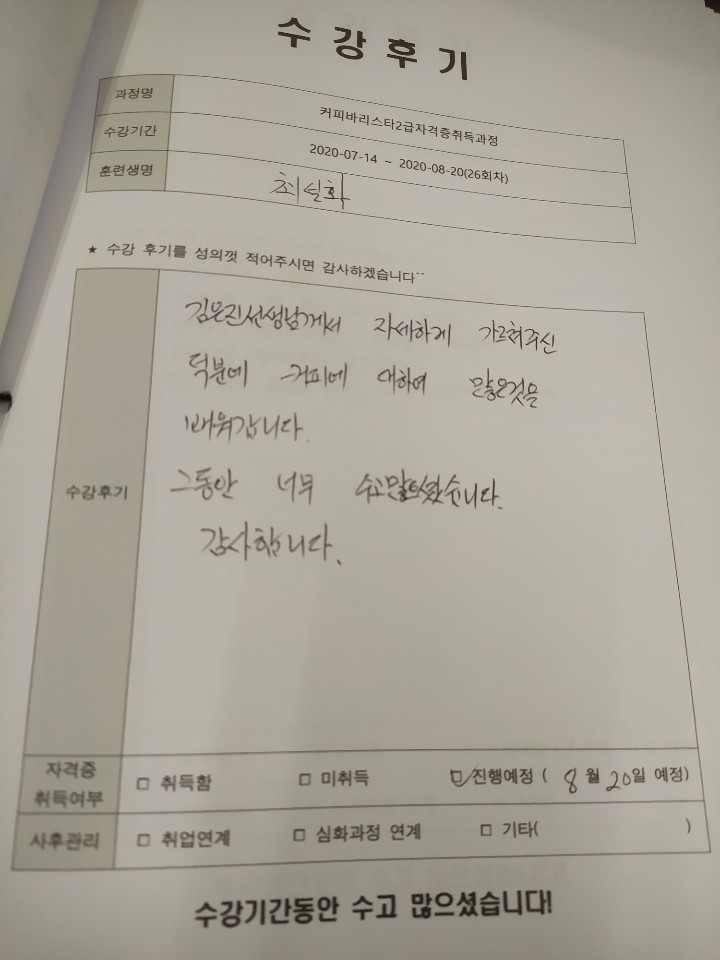 수강후기
과정명 커피바리스타2급자격증취득과정
수강기간 2020-07-14 ~ 2020-08-20(26회차)
훈련생명 최실화
★ 수강 후기를 성의껏 적어주시면 감사하겠습니다~~
김은진선생님께서 자세하게 가르쳐주신
덕분에 커피에 대하여 많은것을
배워갑니다.
수강후기
그동안 너무 수고많으셨습니다.
감사합니다.
자격증
취득여부
□ 취득함 □ 미취득 ☑진행예정 ( 8월 20일 예정)
사후관리 □ 취업연계 □ 심화과정 연계 □ 기타( )
수강기간동안 수고 많으셨습니다!